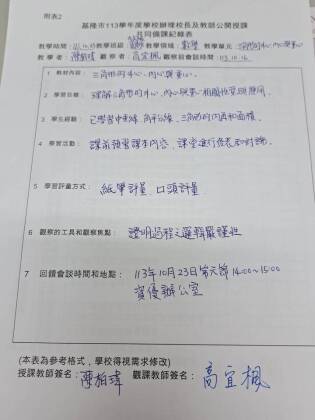 附表2
基隆市113學年度學校辦理校長及教師公開授課
共同備課紀錄表
教學時間： 教學班級： 教學領域：數學 教學單元：三角形的外心、內心與重心
教學者：陳柏瑋 觀察者：高宜楓 觀察前會談時間：113.10.16
1 教材內容： 三角形的外心、內心與重心。
2 學習目標： 理解三角形的外心、內心與重心相關性質與應用。
3 學生經驗： 已學習中垂線、角平分線、三角形的內角和面積。
4 學習活動： 課前預習課本內容，課堂進行發表和討論。
5 學習評量方式： 紙筆評量、口頭評量
6 觀察的工具和觀察焦點： 證明過程之邏輯嚴謹性
7 回饋會談時間和地點： 113年10月23日第六節 14:00~15:00
資優辦公室
(本表為參考格式，學校得視需求修改)
授課教師簽名：陳柏瑋 觀課教師簽名：高宜楓